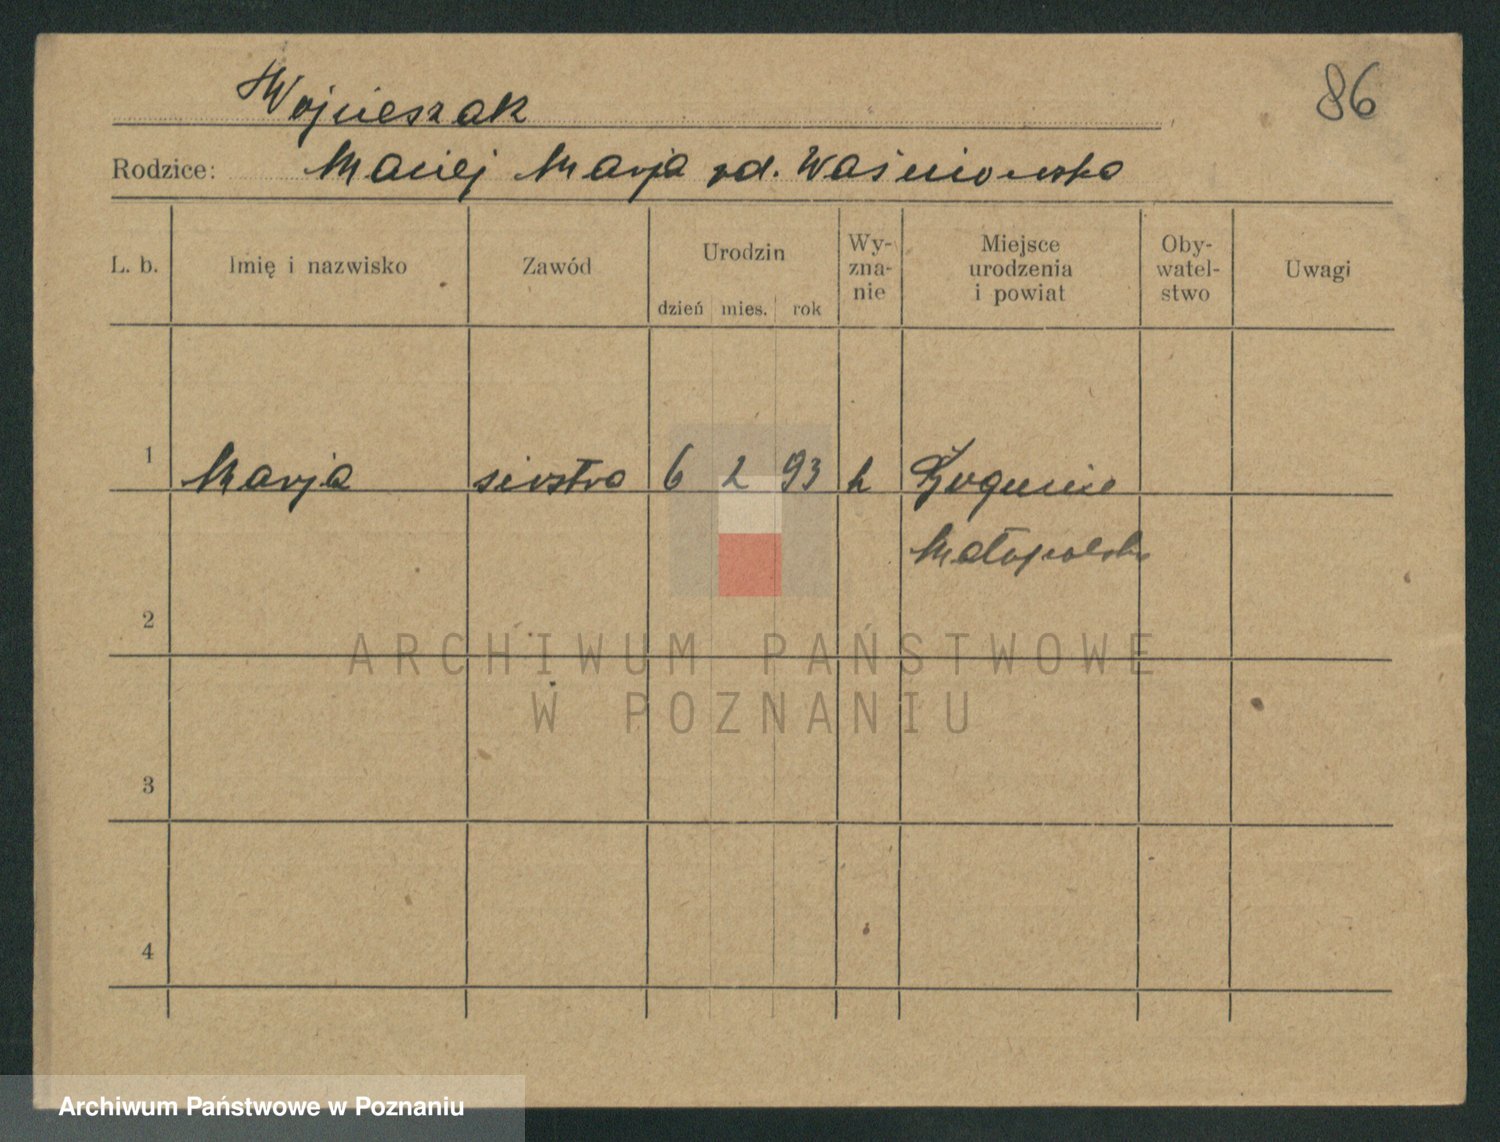 86
Wojcieszak
Rodzice: Maciej Marja zd. Waśniowska
L. b. Imię i nazwisko Zawód Urodzin dzień mies. rok Wy-zna-nie Miejsce urodzenia i powiat Oby-watel-stwo Uwagi
1 Marja siostra 6 2 93 k
Małopolska
2
ARCHIWUM PAŃSTWOWE
W POZNANIU
3
4
Archiwum Państwowe w Poznaniu